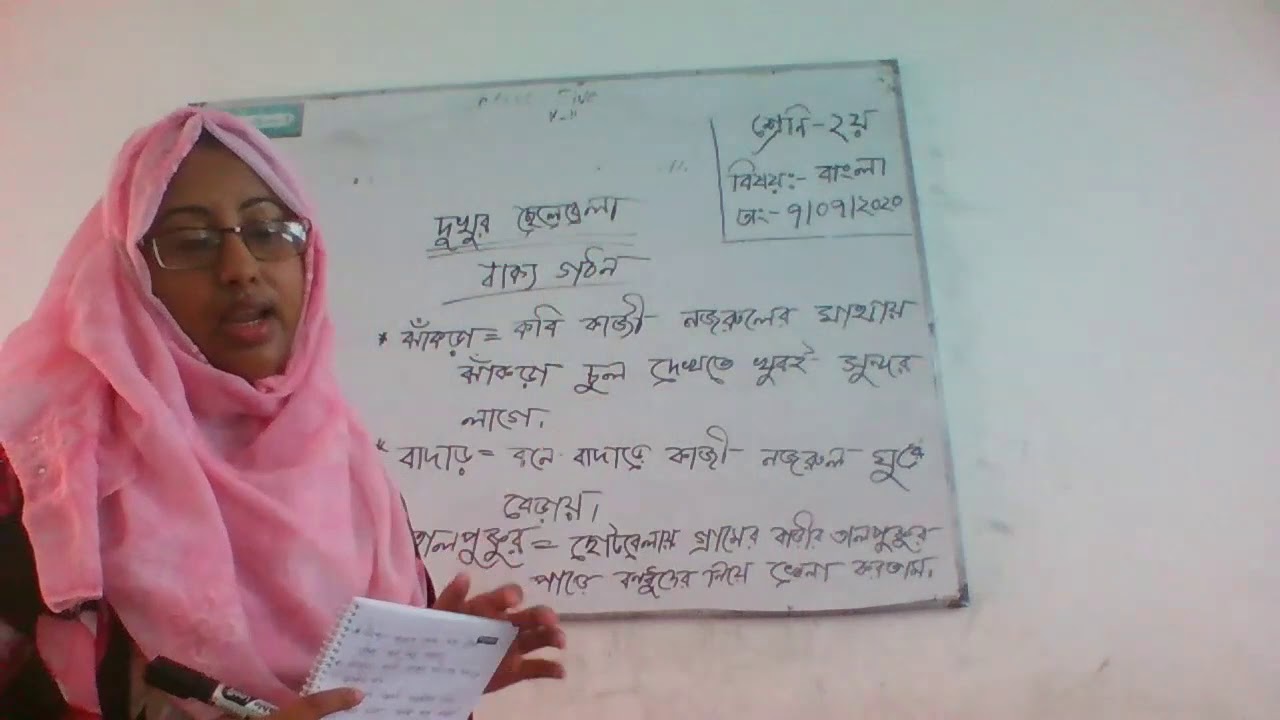 শ্রেনি-২য়
বিষয়:- বাংলা
তাং- ৭/০৭/২০২০
দুখুর ছেলেবেলা
বাক্য গঠন
* ঝাঁকড়া = কবি কাজী নজরুলের মাথায়
ঝাঁকড়া চুল দেখতে খুবই সুন্দর
লাগে.
* বাদাড় = বনে-বাদাড়ে কাজী নজরুল ঘুরে
বেড়ায়।
তালপুকুর = ছোটবেলায় গ্রামের বাড়ীর তালপুকুর
পাড়ে বন্ধুদের নিয়ে খেলা করতাম.